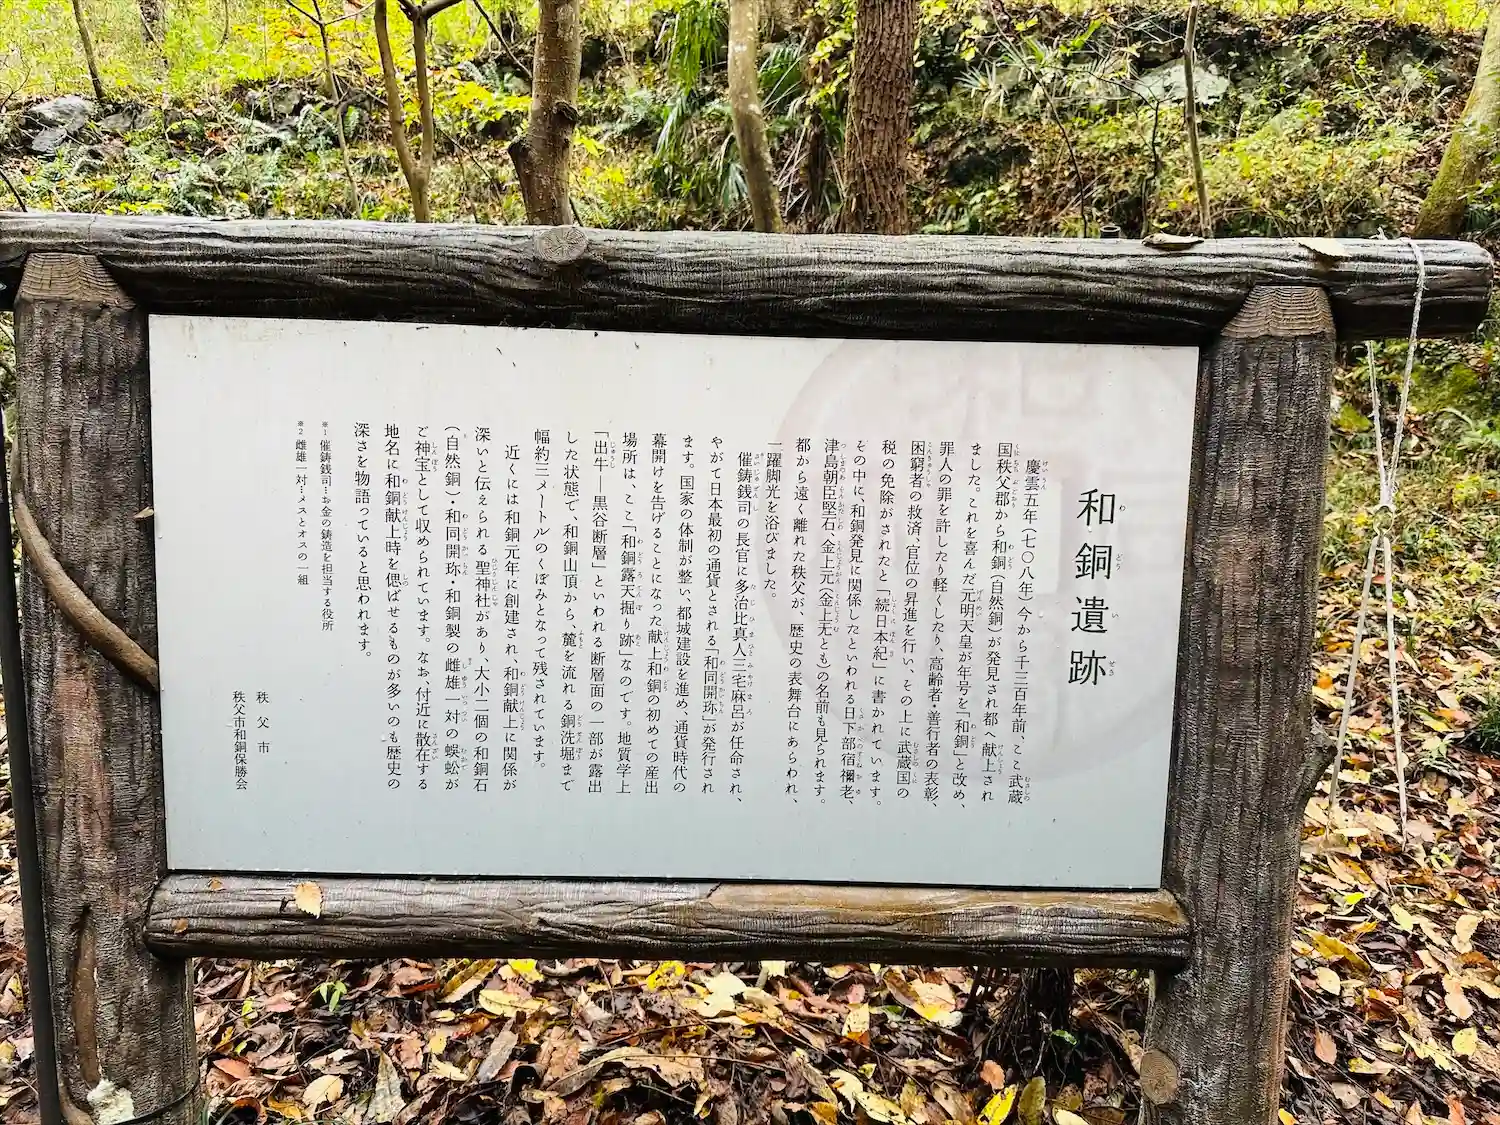 和銅遺跡
慶雲五年(七〇八年)今から千三百年前、ここ武蔵
国秩父郡から和銅(自然銅)が発見され都へ献上され
ました。これを喜んだ元明天皇が年号を「和銅」と改め、
罪人の罪を許したり軽くしたり、高齢者・善行者の表彰、
困窮者の救済、官位の昇進を行い、その上に武蔵国の
税の免除がされたと「続日本紀」に書かれています。
その中に、和銅発見に関係したといわれる日下部宿禰老、
津島朝臣堅石、金上元(金上无とも)の名前も見られます。
都から遠く離れた秩父が、歴史の表舞台にあらわれ、
一躍脚光を浴びました。
催鋳銭司の長官に多治比真人三宅麻呂が任命され、
やがて日本最初の通貨とされる「和同開珎」が発行され
ます。国家の体制が整い、都城建設を進め、通貨時代の
幕開けを告げることになった献上和銅の初めての産出
場所は、ここ「和銅露天掘り跡」なのです。地質学上
「出牛―黒谷断層」といわれる断層面の一部が露出
した状態で、和銅山頂から、麓を流れる銅洗堀まで
幅約三メートルのくぼみとなって残されています。
近くには和銅元年に創建され、和銅献上に関係が
深いと伝えられる聖神社があり、大小二個の和銅石
(自然銅)・和同開珎・和銅製の雌雄一対の蜈蚣が
ご神宝として収められています。なお、付近に散在する
地名に和銅献上時を偲ばせるものが多いのも歴史の
深さを物語っていると思われます。
※1 催鋳銭司…お金の鋳造を担当する役所
※2 雌雄一対…メスとオスの一組
秩父市
秩父市和銅保勝会